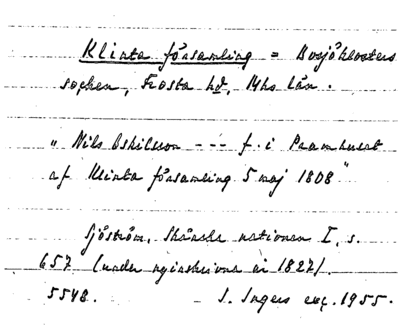 Klinta församling = Bosjöklosters
socken, Frosta hd, Mhs län.
"Nils Eskilsson --- f. i Pramhuset
af Klinta församling 5 maj 1808"
Sjöström, Skånska nationen I, s.
657 (under nyinskrivna år 1827).
5548. – I. Ingers exc. 1955.